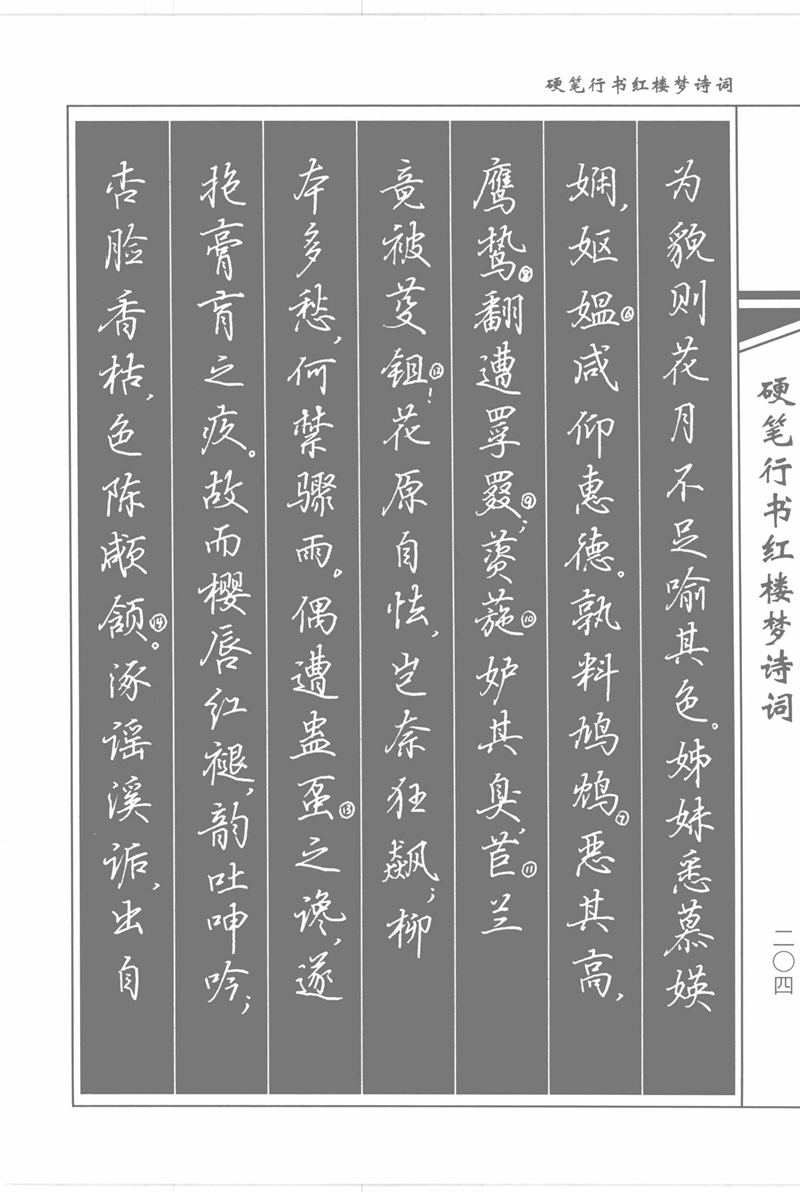 硬笔行书红楼梦诗词
为貌则花月不足喻其色。姊妹悉慕媖
娴，妪媪⑥咸仰惠德。孰料鸠鸩⑦恶其高，
鹰鸷⑧翻遭罦罬⑨；薋葹⑩妒其臭，茝⑪兰
竟被芟鉏⑫！花原自怯，岂奈狂飙；柳
本多愁，何禁骤雨。偶遭蛊虿⑬之谗，遂
抱膏肓之疚。故而樱唇红褪，韵吐呻吟；
杏脸香枯，色陈顑颔⑭。诼谣溪诟，出自
硬笔行书红楼梦诗词
二〇四